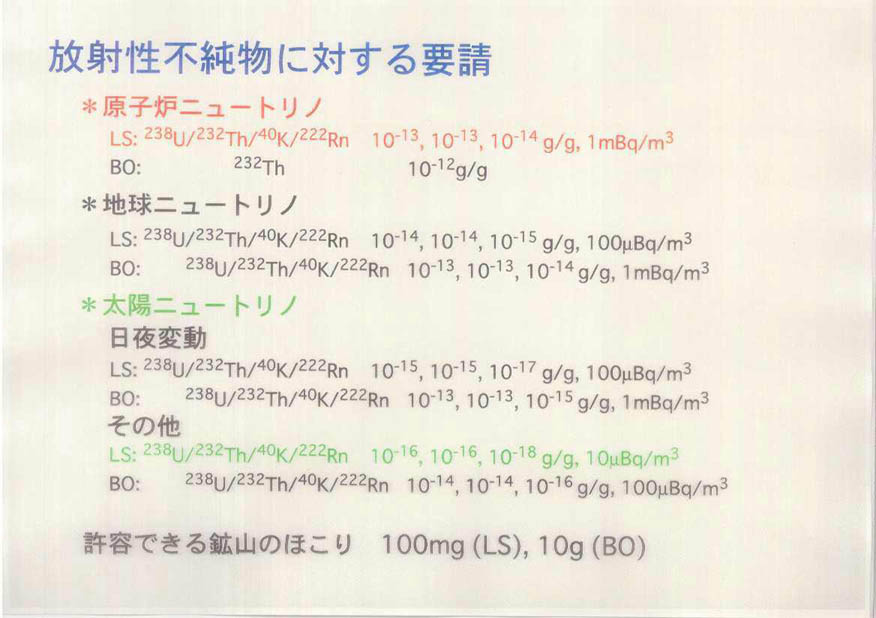 放射性不純物に対する要請
＊原子炉ニュートリノ
LS: ²³⁸U/²³²Th/⁴⁰K/²²²Rn 10⁻¹³, 10⁻¹³, 10⁻¹⁴ g/g, 1mBq/m³
BO: ²³²Th 10⁻¹²g/g
＊地球ニュートリノ
LS: ²³⁸U/²³²Th/⁴⁰K/²²²Rn 10⁻¹⁴, 10⁻¹⁴, 10⁻¹⁵ g/g, 100μBq/m³
BO: ²³⁸U/²³²Th/⁴⁰K/²²²Rn 10⁻¹³, 10⁻¹³, 10⁻¹⁴ g/g, 1mBq/m³
＊太陽ニュートリノ
日夜変動
LS: ²³⁸U/²³²Th/⁴⁰K/²²²Rn 10⁻¹⁵, 10⁻¹⁵, 10⁻¹⁷ g/g, 100μBq/m³
BO: ²³⁸U/²³²Th/⁴⁰K/²²²Rn 10⁻¹³, 10⁻¹³, 10⁻¹⁵ g/g, 1mBq/m³
その他
LS: ²³⁸U/²³²Th/⁴⁰K/²²²Rn 10⁻¹⁶, 10⁻¹⁶, 10⁻¹⁸ g/g, 10μBq/m³
BO: ²³⁸U/²³²Th/⁴⁰K/²²²Rn 10⁻¹⁴, 10⁻¹⁴, 10⁻¹⁶ g/g, 100μBq/m³
許容できる鉱山のほこり 100mg (LS), 10g (BO)